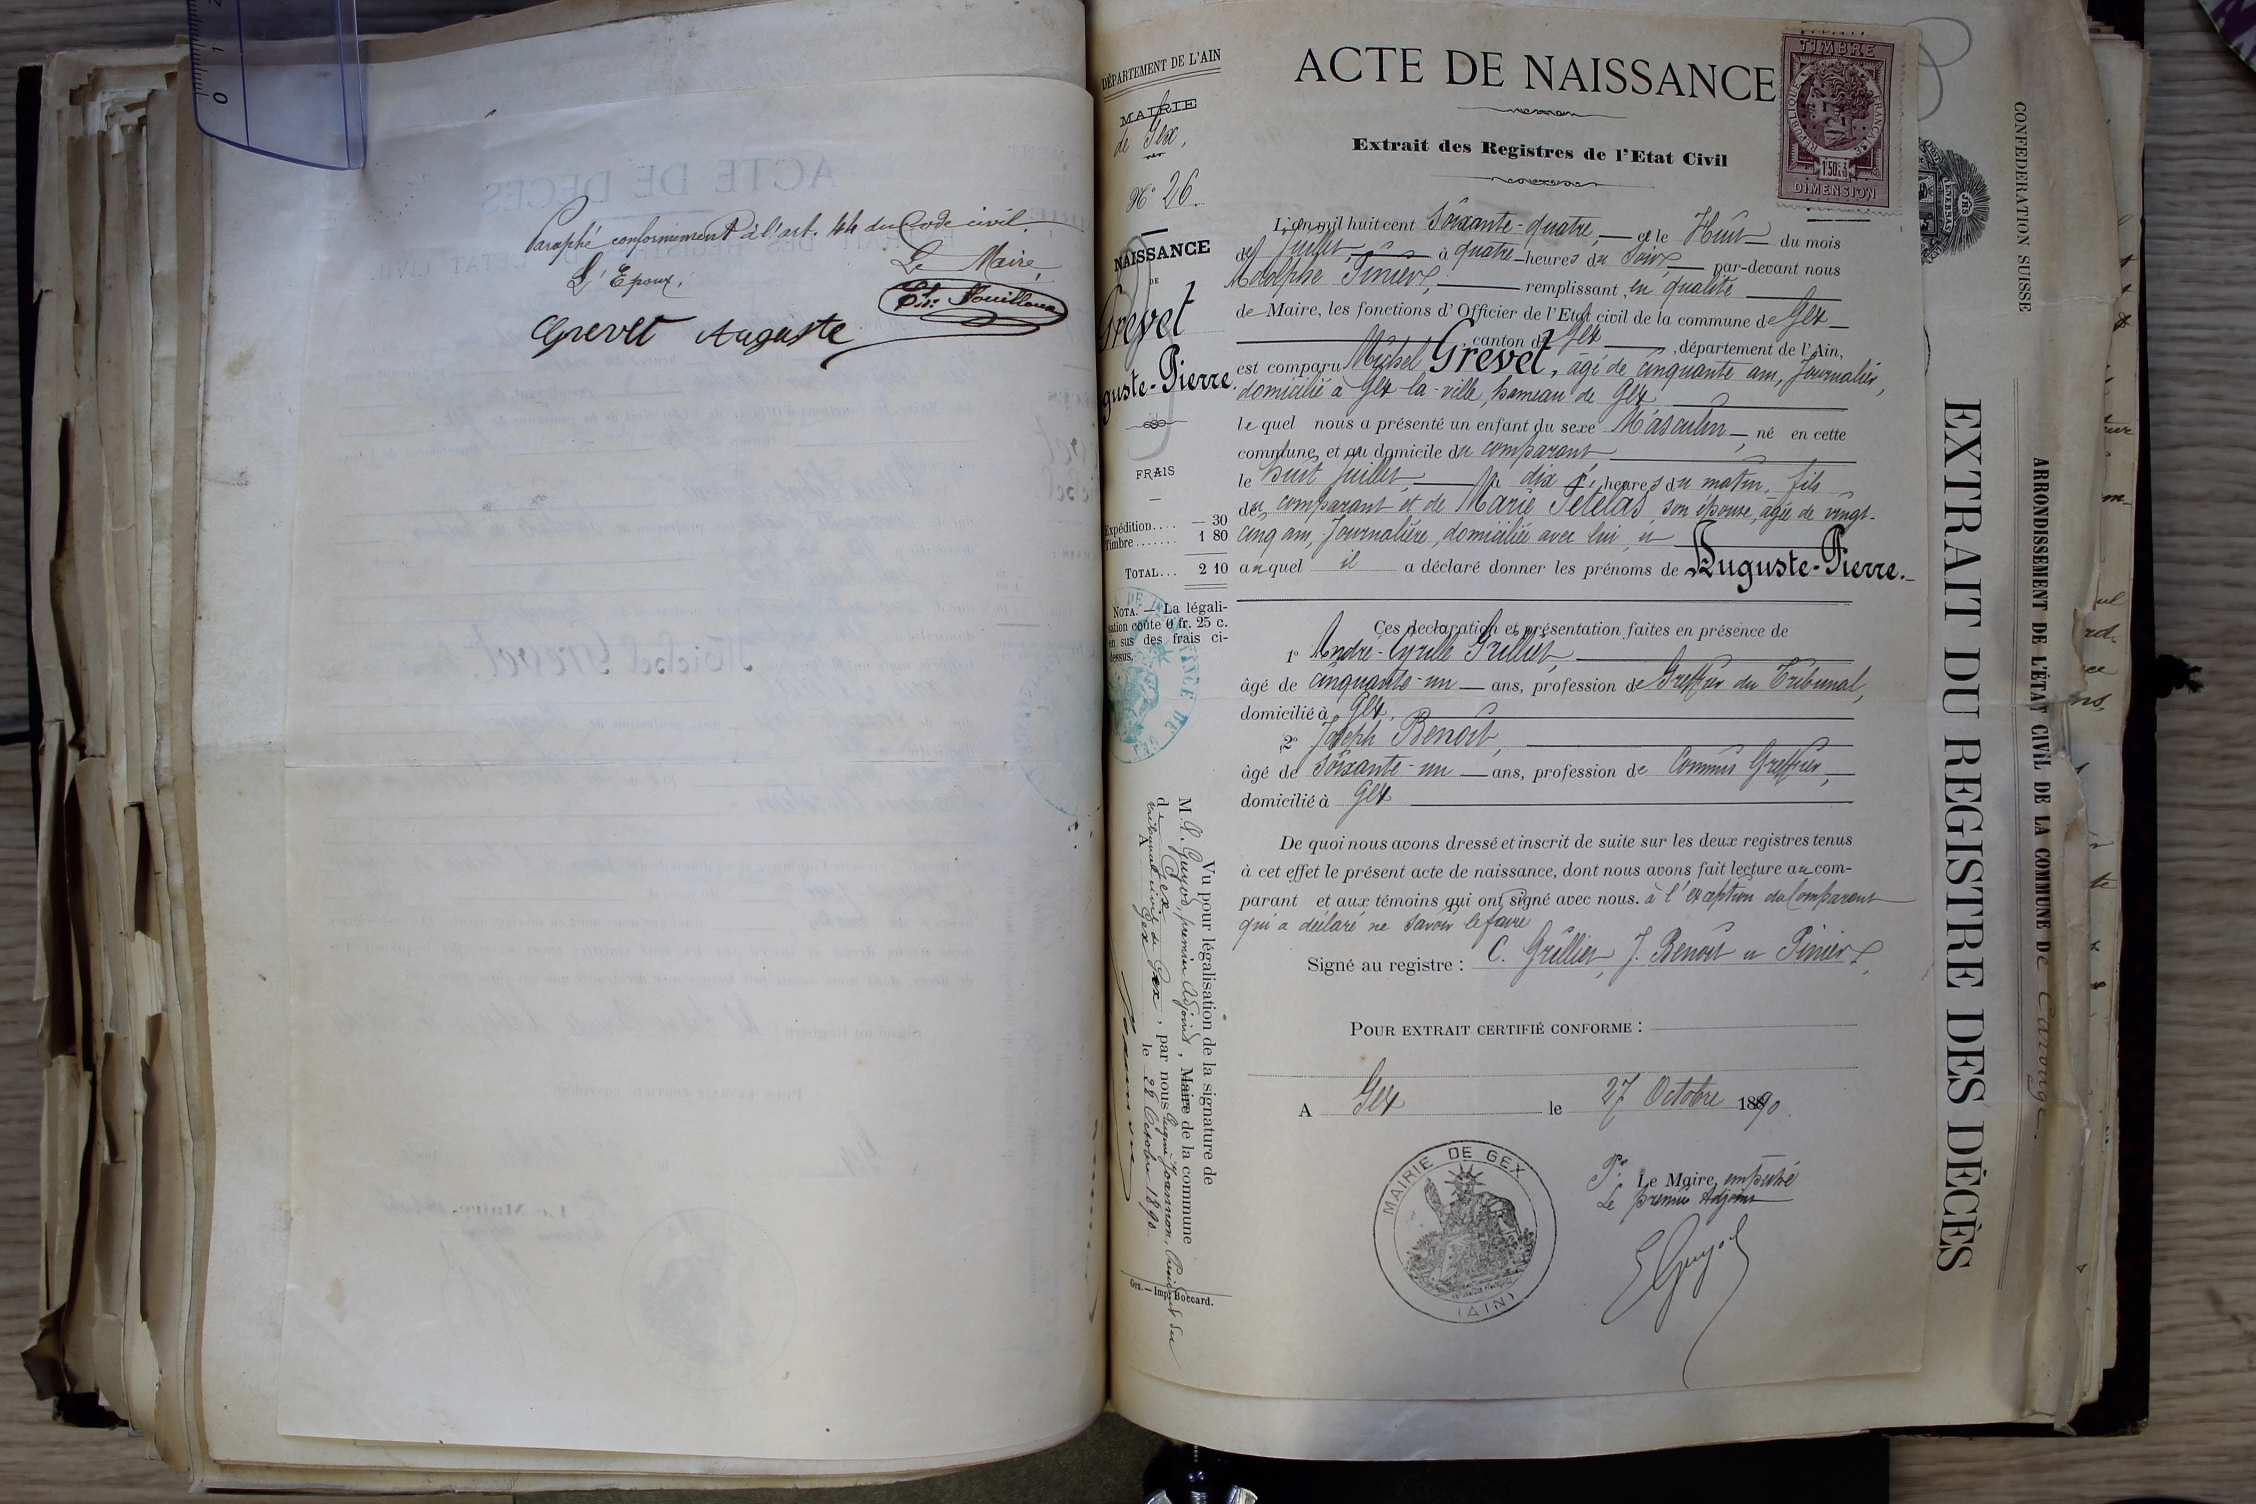 Paraphé conformément à l'art. 44 du Code civil.
L'Epoux,
Le Maire,
Grevet Auguste
DÉPARTEMENT DE L'AIN
MAIRIE
de Gex,
N° 26.
NAISSANCE
DE
Grevet
guste-Pierre.
FRAIS
Expédition.... — 30
Timbre....... 1 80
TOTAL... 2 10
NOTA. — La légali-
sation coûte 0 fr. 25 c.
en sus des frais ci-
dessus.
Vu pour légalisation de la signature de
M. Guyod, premier Adjoint, Maire de la commune
de Gex, par nous Joannon, Président du
tribunal civil de Gex
A Gex le 28 Octobre 1890
Gex. — Imp. Boccard.
ACTE DE NAISSANCE
Extrait des Registres de l'Etat Civil
TIMBRE
RÉPUBLIQUE FRANÇAISE
1F50
DIMENSION
L'an mil huit cent soixante-quatre, et le Huit du mois
de Juillet, à quatre heures du soir par-devant nous
Adolphe Pinier, remplissant, en qualité
de Maire, les fonctions d'Officier de l'Etat civil de la commune de Gex
canton de Gex, département de l'Ain,
est comparu Michel Grevet, âgé de cinquante ans, Journalier,
domicilié à Gex-la-ville, hameau de Gex
lequel nous a présenté un enfant du sexe Masculin, né en cette
commune, et au domicile du comparant,
le huit juillet, à dix heures du matin, fils
du comparant et de Marie Petelas son épouse, âgée de vingt-
cinq ans, Journalière, domiciliée avec lui, et
auquel il a déclaré donner les prénoms de Auguste-Pierre.
Ces declaration et présentation faites en présence de
1° André-Cyrille Grillier,
âgé de cinquante-un ans, profession de Greffier du Tribunal,
domicilié à Gex,
2° Joseph Benoit,
âgé de soixante-un ans, profession de Commis Greffier,
domicilié à Gex
De quoi nous avons dressé et inscrit de suite sur les deux registres tenus
à cet effet le présent acte de naissance, dont nous avons fait lecture au com-
parant et aux témoins qui ont signé avec nous. à l'exception du Comparant
qui a déclaré ne savoir le faire
Signé au registre : C. Grillier, J. Benoit et Pinier,
POUR EXTRAIT CERTIFIÉ CONFORME :
A Gex le 27 Octobre 1890
Pr. Le Maire, empêché
Le premier Adjoint
MAIRIE DE GEX
(AIN)
CONFEDERATION SUISSE
ARRONDISSEMENT DE L'ÉTAT CIVIL DE LA COMMUNE DE Carouge.
EXTRAIT DU REGISTRE DES DÉCÈS